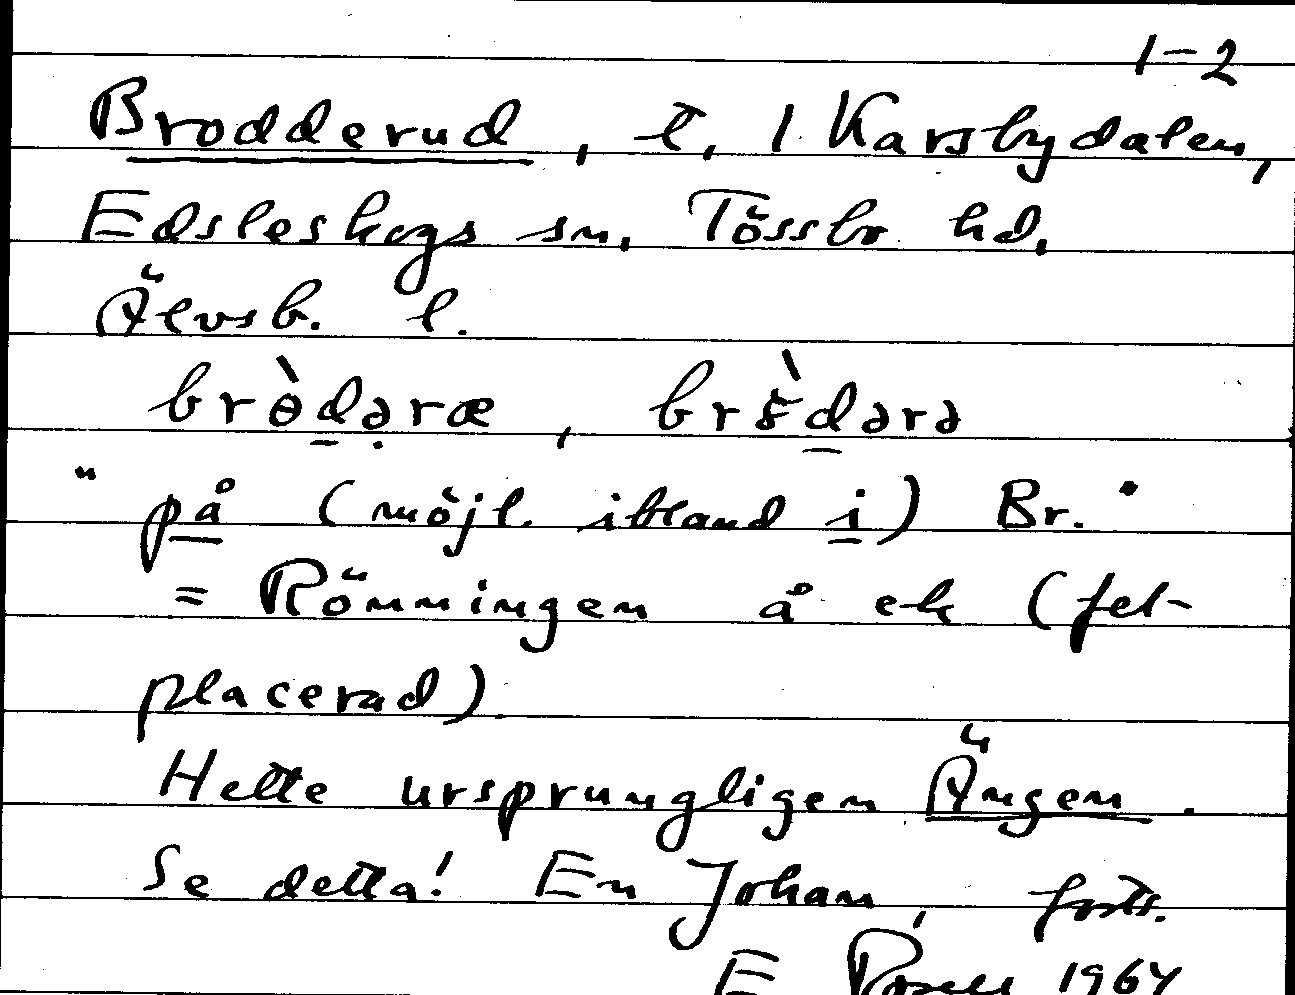 1-2
Brodderud, t, 1 Karsbydalen,
Edsleskogs sn, Tössbo hd,
Älvsb. l.
brɵ̀də̣ræ, brɵ̀dərə
"på (möjl. ibland i) Br."
= Rönningen å ek (fel-
placerad)
Hette ursprungligen Ängen.
Se detta! En Johan, forts.
E 1964